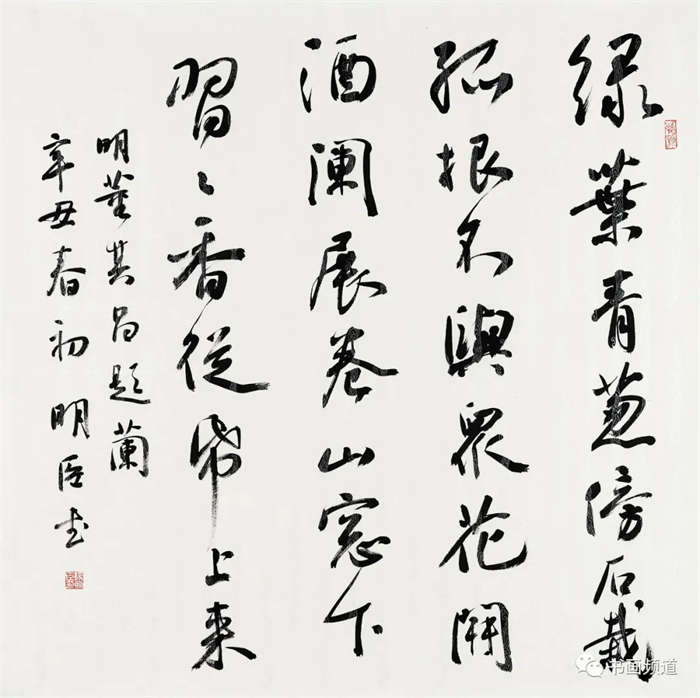 绿葉青葱傍石栽
孤根不與眾花開
酒闌展卷山窓下
習〻香從帋上来
明董其昌題蘭
辛丑春初 明臣书
书画频道